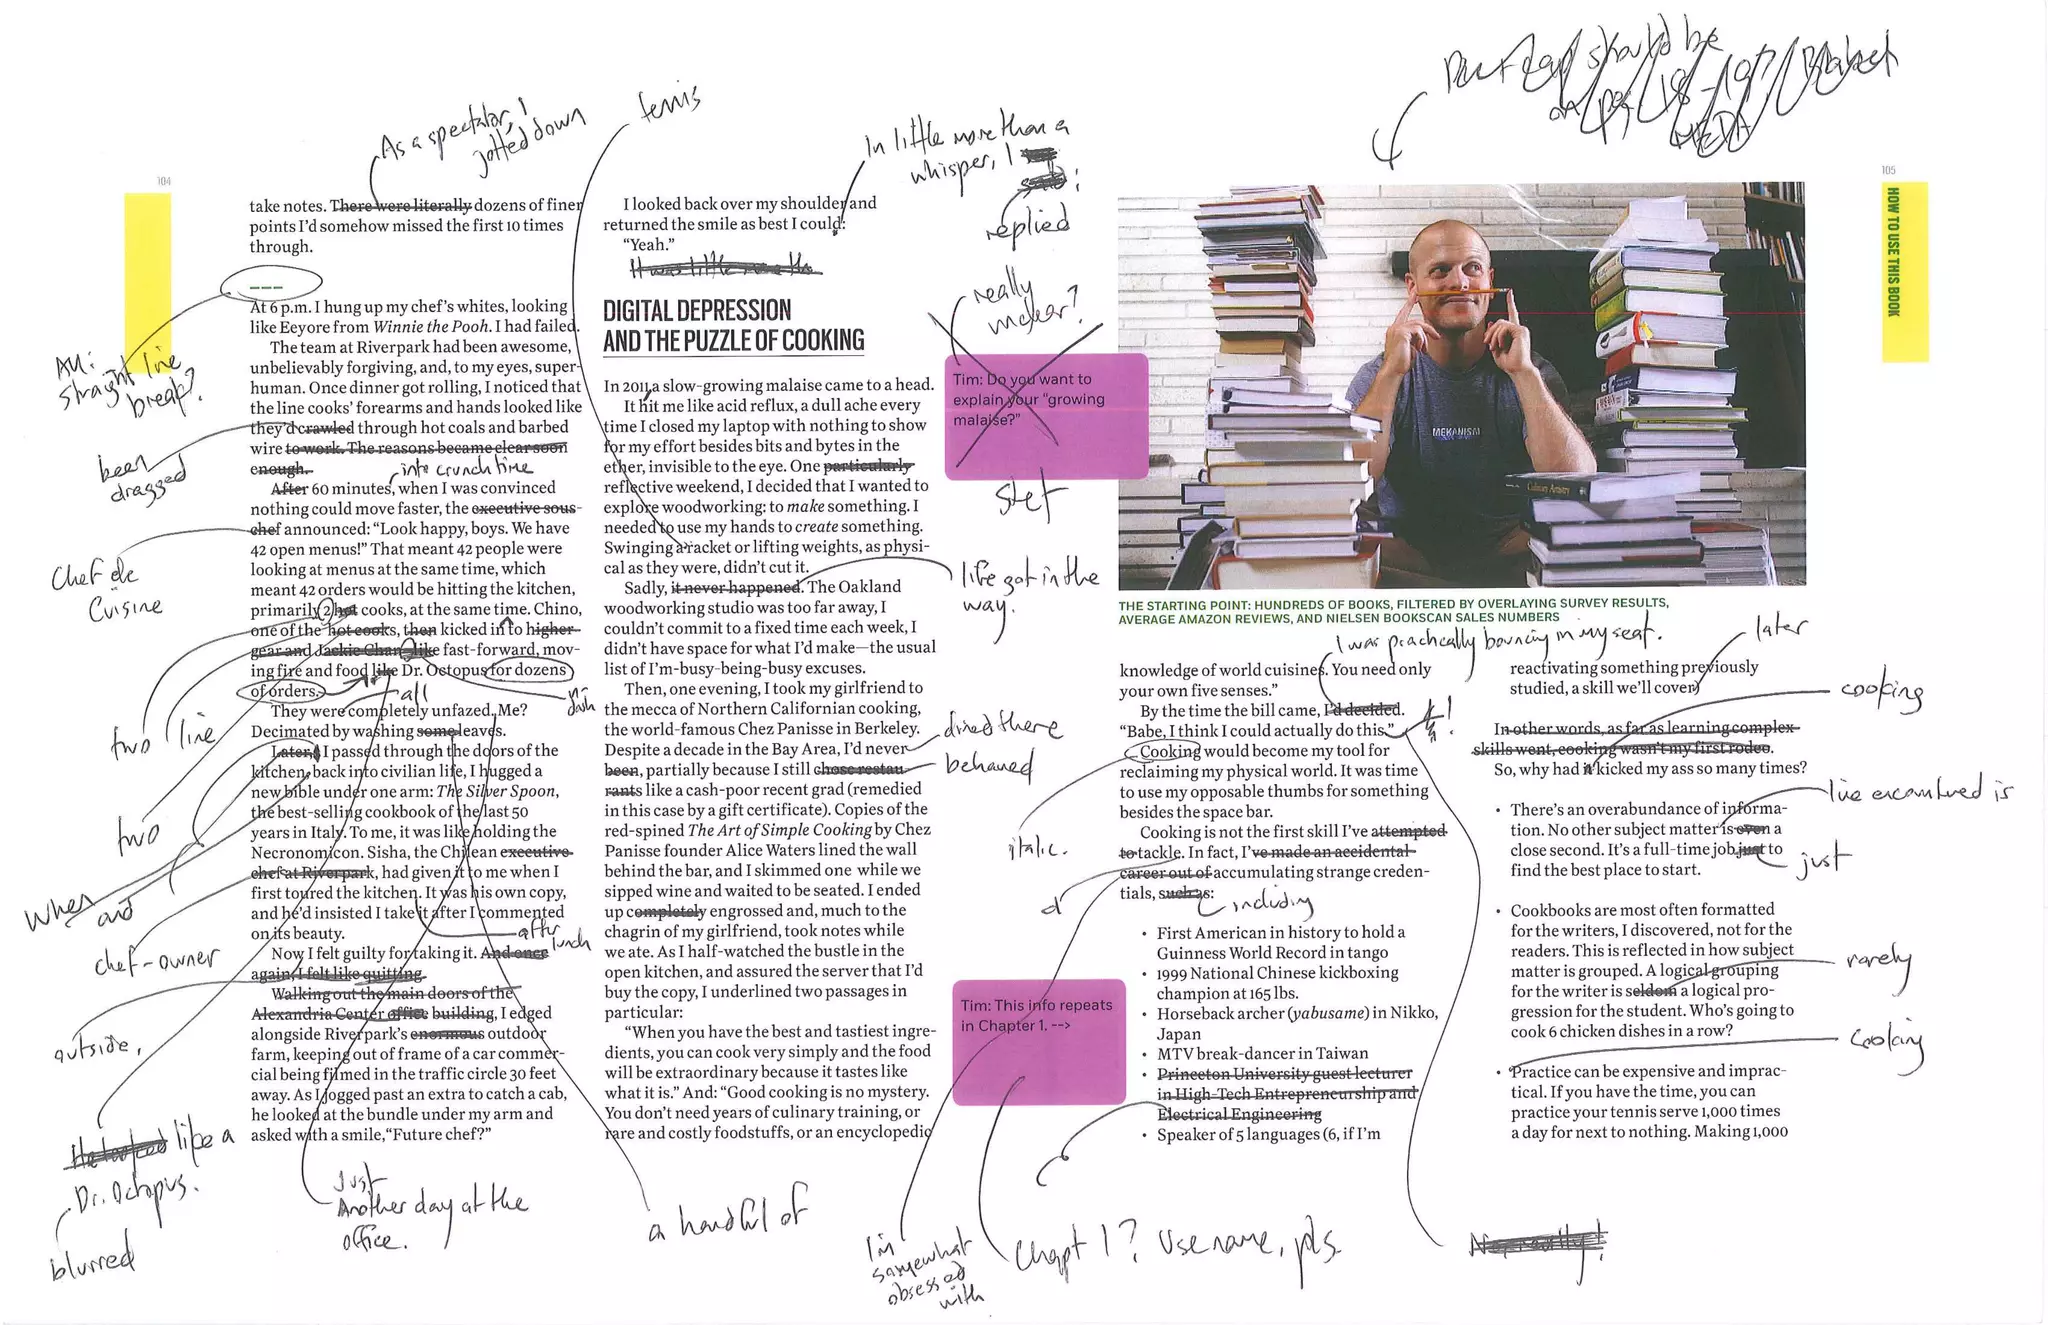 104
take notes. There were literally dozens of finer
points I'd somehow missed the first 10 times
through.
– – –
At 6 p.m. I hung up my chef's whites, looking
like Eeyore from Winnie the Pooh. I had failed.
The team at Riverpark had been awesome,
unbelievably forgiving, and, to my eyes, super-
human. Once dinner got rolling, I noticed that
the line cooks' forearms and hands looked like
they'd crawled through hot coals and barbed
wire to work. The reasons became clear soon
enough.
After 60 minutes, when I was convinced
nothing could move faster, the executive sous-
chef announced: “Look happy, boys. We have
42 open menus!” That meant 42 people were
looking at menus at the same time, which
meant 42 orders would be hitting the kitchen,
primarily 2 hot cooks, at the same time. Chino,
one of the hot cooks, then kicked in to higher
gear and Jackie Chan-like fast-forward, mov-
ing fire and food like Dr. Octopus for dozens
of orders.
They were completely unfazed. Me?
Decimated by washing some leaves.
Later, I passed through the doors of the
kitchen, back into civilian life, I hugged a
new bible under one arm: The Silver Spoon,
the best-selling cookbook of the last 50
years in Italy. To me, it was like holding the
Necronomicon. Sisha, the Chilean executive
chef at Riverpark, had given it to me when I
first toured the kitchen. It was his own copy,
and he'd insisted I take it after I commented
on its beauty.
Now I felt guilty for taking it. And once
again, I felt like quitting
Walking out the main doors of the
Alexandria Center office building, I edged
alongside Riverpark's enormous outdoor
farm, keeping out of frame of a car commer-
cial being filmed in the traffic circle 30 feet
away. As I jogged past an extra to catch a cab,
he looked at the bundle under my arm and
asked with a smile, “Future chef?”
As a spectator, I
jotted down
straight line
break?
been
dragged
into crunch time
Chef de
Cuisine
two line
dash
all
two
when
and
chef-owner
after
lunch
outside,
He looked like a
Dr. Octopus.
blurred
Just
Another day at the
office.
a handful of
tennis
I looked back over my shoulder and
returned the smile as best I could:
“Yeah.”
It was little more tha
DIGITAL DEPRESSION
AND THE PUZZLE OF COOKING
In 2011, a slow-growing malaise came to a head.
It hit me like acid reflux, a dull ache every
time I closed my laptop with nothing to show
for my effort besides bits and bytes in the
ether, invisible to the eye. One particularly
reflective weekend, I decided that I wanted to
explore woodworking: to make something. I
needed to use my hands to create something.
Swinging a racket or lifting weights, as physi-
cal as they were, didn't cut it.
Sadly, it never happened. The Oakland
woodworking studio was too far away, I
couldn't commit to a fixed time each week, I
didn't have space for what I'd make—the usual
list of I'm-busy-being-busy excuses.
Then, one evening, I took my girlfriend to
the mecca of Northern Californian cooking,
the world-famous Chez Panisse in Berkeley.
Despite a decade in the Bay Area, I'd never
been, partially because I still chose restau-
rants like a cash-poor recent grad (remedied
in this case by a gift certificate). Copies of the
red-spined The Art of Simple Cooking by Chez
Panisse founder Alice Waters lined the wall
behind the bar, and I skimmed one while we
sipped wine and waited to be seated. I ended
up completely engrossed and, much to the
chagrin of my girlfriend, took notes while
we ate. As I half-watched the bustle in the
open kitchen, and assured the server that I'd
buy the copy, I underlined two passages in
particular:
“When you have the best and tastiest ingre-
dients, you can cook very simply and the food
will be extraordinary because it tastes like
what it is.” And: “Good cooking is no mystery.
You don't need years of culinary training, or
rare and costly foodstuffs, or an encyclopedic
In little more than a
whisper, I
replied
really
matter?
Tim: Do you want to
explain your “growing
malaise?”
stet
life got in the
way.
dined there
behaved
italic.
Tim: This info repeats
in Chapter 1. -->
I'm
somewhat
obsessed
with
Chapt 1? Use name, pls.
should be
on pg. 18-19?
105
HOW TO USE THIS BOOK
MEKANISM
Culinary Artistry
THE STARTING POINT: HUNDREDS OF BOOKS, FILTERED BY OVERLAYING SURVEY RESULTS,
AVERAGE AMAZON REVIEWS, AND NIELSEN BOOKSCAN SALES NUMBERS
I was practically bouncing in my seat.
knowledge of world cuisines. You need only
your own five senses.”
By the time the bill came, I'd decided.
“Babe, I think I could actually do this.”
Cooking would become my tool for
reclaiming my physical world. It was time
to use my opposable thumbs for something
besides the space bar.
Cooking is not the first skill I've attempted
to tackle. In fact, I've made an accidental
career out of accumulating strange creden-
tials, such as:
including
• First American in history to hold a
Guinness World Record in tango
• 1999 National Chinese kickboxing
champion at 165 lbs.
• Horseback archer (yabusame) in Nikko,
Japan
• MTV break-dancer in Taiwan
• Princeton University guest lecturer
in High-Tech Entrepreneurship and
Electrical Engineering
• Speaker of 5 languages (6, if I'm
reactivating something previously
studied, a skill we'll cover)
In other words, as far as learning complex
skills went, cooking wasn't my first rodeo.
So, why had it kicked my ass so many times?
• There's an overabundance of informa-
tion. No other subject matter is even a
close second. It's a full-time job just to
find the best place to start.
• Cookbooks are most often formatted
for the writers, I discovered, not for the
readers. This is reflected in how subject
matter is grouped. A logical grouping
for the writer is seldom a logical pro-
gression for the student. Who's going to
cook 6 chicken dishes in a row?
• Practice can be expensive and imprac-
tical. If you have the time, you can
practice your tennis serve 1,000 times
a day for next to nothing. Making 1,000
later
cooking
I've encountered is
just
rarely
cooking